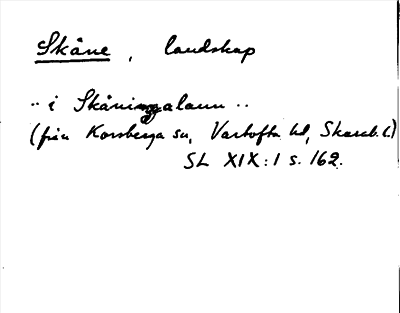 Skåne, landskap
.. i Skåningalann ..
(från Korsberga sn, Vartofta hd, Skarab. l.)
SL XIX:1 s. 162.